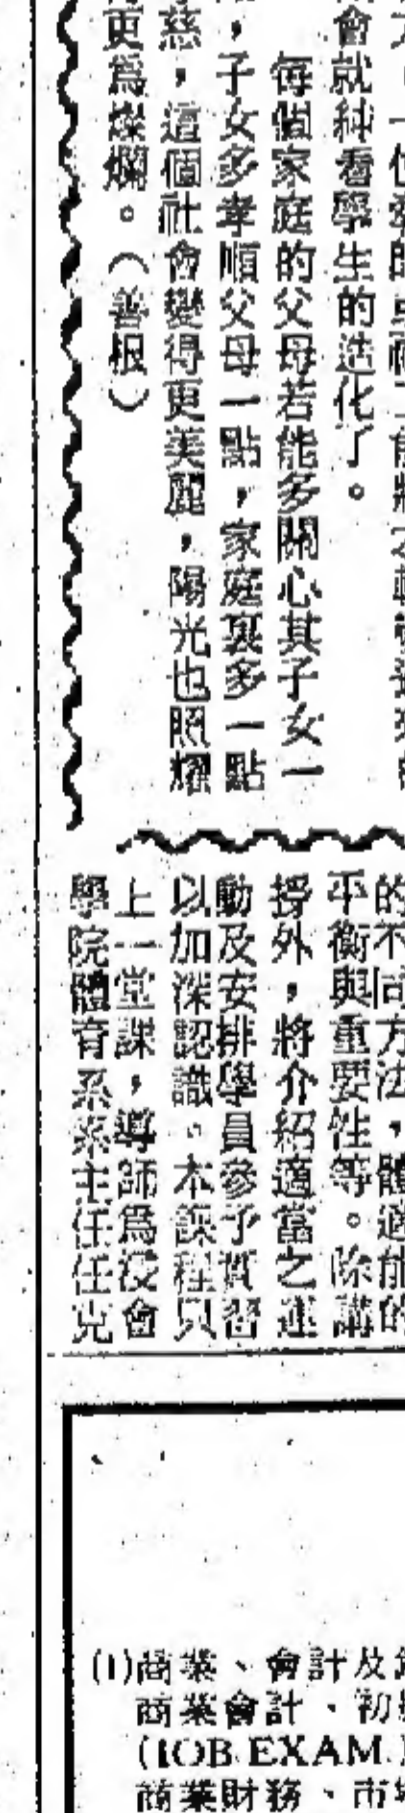 會就純看學生的造化了。
每個家庭的父母若能多關心其子女一
，子女多孝順父母一點，家庭裏多一點
慈，這個社會變得更美麗，陽光也照耀
更為燦爛。（善根）
的不同方法，體適能的
平衡與重要性等。除講
授外，將介紹適當之運
動及安排學員參予實習
以加深認識。本課程只
上一堂課，導師為浸會
學院體育系系主任任克
(1)商業、會計及
商業會計、初
(IOB.EXAM.
商業財務、市